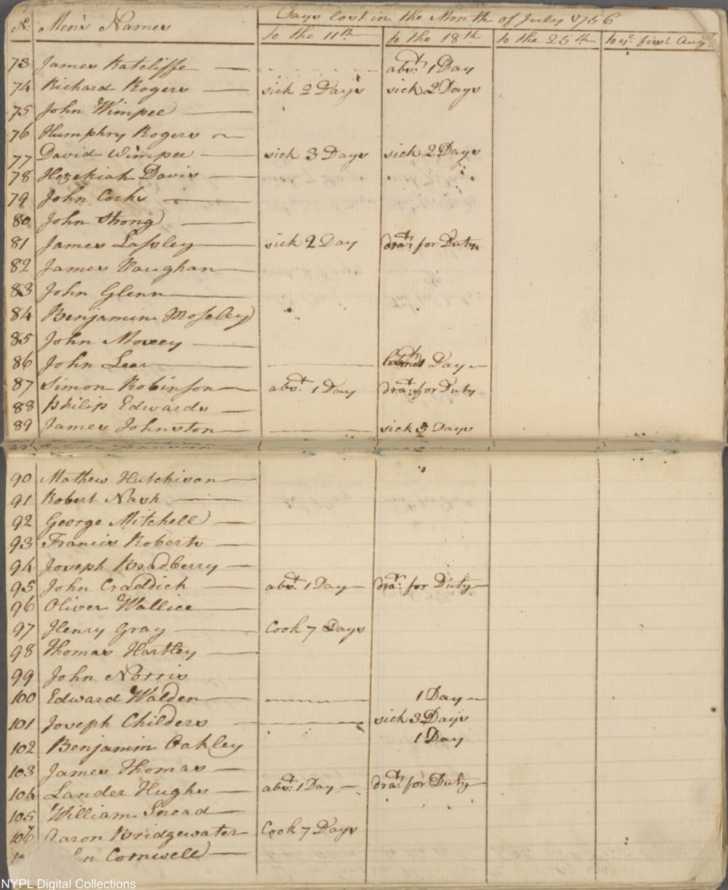 No. Men's Names Days lost in the Month of July 1756
to the 11th to the 18th to the 25th to ye first Augt
73 James Ratcliffe abst. 1 Day
74 Richard Rogers sick 2 Days sick 2 Days
75 John Wimpee
76 Humphry Rogers
77 David Wimpee sick 3 Days sick 2 Days
78 Hezekiah Davis
79 John Cocks
80 John Strong
81 James Lassley sick 2 Day drat. for Duty
82 James Vaughan
83 John Glenn
84 Benjamin Moseley
85 John Moxey
86 John Lear Day
87 Simon Robinson abst. 1 Day drat. for Duty
88 Philip Edwards
89 James Johnston sick 3 Days
90 Mathew Hutchison
91 Robert Nash
92 George Mitchell
93 Francis Roberts
94 Joseph Bradberry
95 John Craddick abst. 1 Day drat. for Duty
96 Oliver Wallice
97 Henry Gray Cook 7 Days
98 Thomas Hartley
99 John Norris
100 Edward Walden 1 Day
101 Joseph Childers sick 3 Days
102 Benjamin Oakley 1 Day
103 James Thomas
104 Lander Hughs abst. 1 Day drat. for Duty
105 William Snead
106 Aaron Bridgewater Cook 7 Days
Cornwell
NYPL Digital Collections